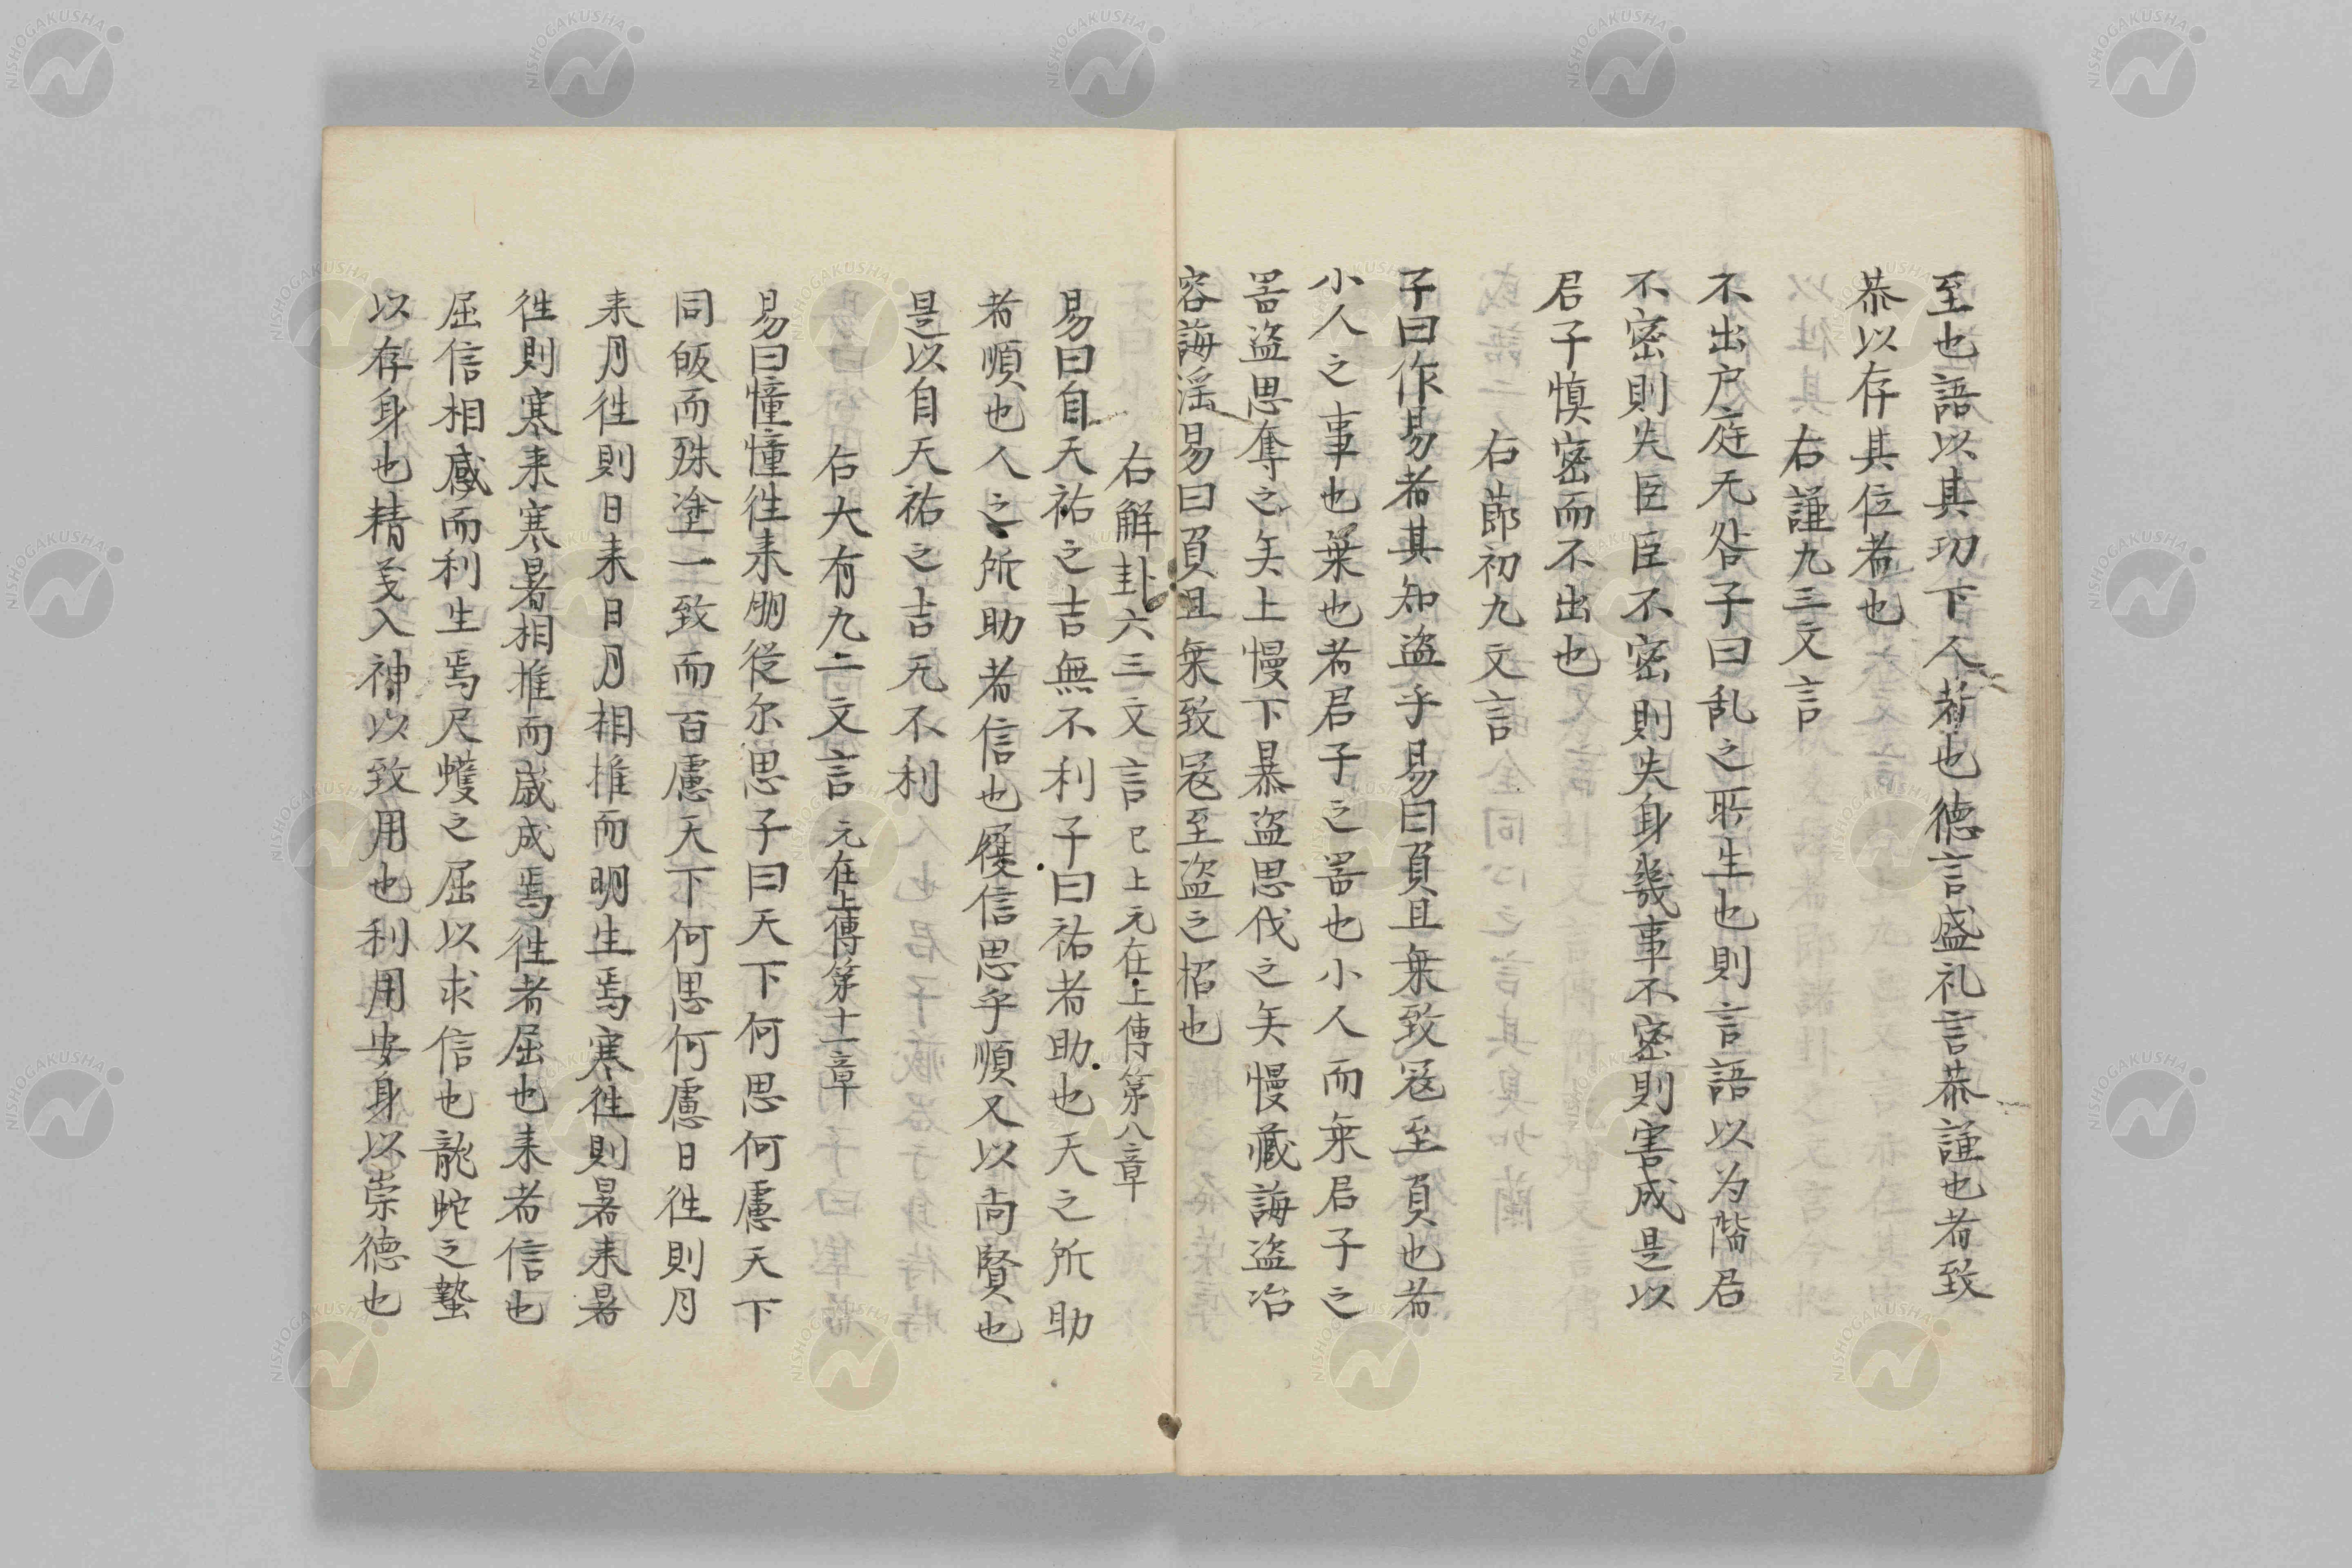 至也語以其功下人者也德言盛礼言恭謹也者致
恭以存其位者也
右謹九三文言
不出户庭无咎子曰乱之所生也則言語以为階君
不密則失臣臣不密則失身幾事不密則害成是以
君子慎密而不出也
右節初九文言
子曰作易者其知盗乎易曰負且乗致冦至負也者
小人之事也乗也者君子之噐也小人而乗君子之
噐盗思奪之矣上慢下暴盗思伐之矣慢藏誨盗冶
容誨淫易曰負且乗致冦至盗之招也
右解卦六三文言已上元在上傳第八章
易曰自天祐之吉無不利子曰祐者助也天之所助
者順也人之所助者信也履信思乎順又以尚賢也
是以自天祐之吉无不利
右大有九二文言元在上傳第十一章
易曰憧憧徃来朋從尔思子曰天下何思何慮天下
同皈而殊塗一致而百慮天下何思何慮日徃則月
来月徃則日来日月相推而明生焉寒徃則暑来暑
徃則寒来寒暑相推而歳成焉徃者屈也来者信也
屈信相感而利生焉尺蠖之屈以求信也龍蛇之蟄
以存身也精义入神以致用也利用安身以崇德也
NISHOGAKUSHA